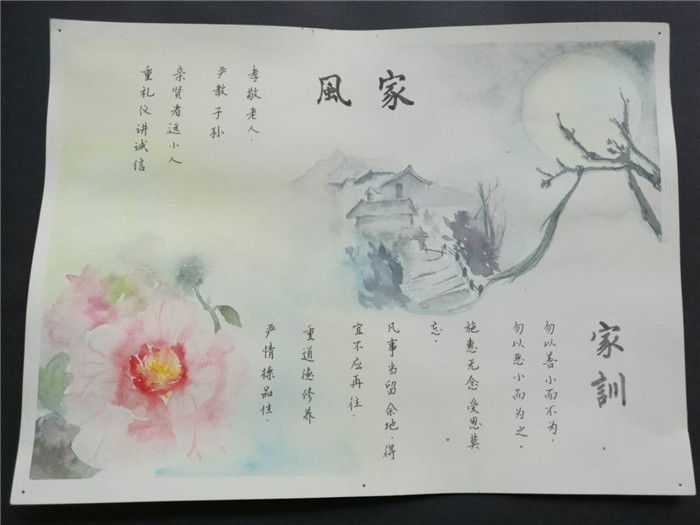 家風
孝敬老人.
严教子孙
亲贤者远小人
重礼仪讲诚信
家訓
勿以善小而不为.
勿以恶小而为之.
施惠无念受恩莫
忘.
凡事当留余地.得
宜不应再往.
重道德修养
严情操品性.